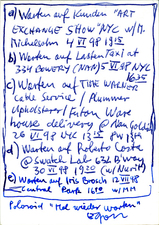 a) Warten auf Kunden "ART
EXCHANGE SHOW" NYC w/M.
Nickelson 4 VI 98 19 15
b) Warten auf Lasten Taxi at
334 BOWERY (NAN) 5 VI 98 NYC
1635
c) Warten auf TIME WARNER
Cable Service / Plummer
Upholstery / Futon Ware
house delivery @ Nan Goldin's
26 VI 98 NYC
d) Warten auf Roberto Costa
@ Swatch Lab 632 B'way
30 VI 98 1930 (w/Nurit)
e) Warten auf Iris Broch 12 VII 98
Central Park 1610 w/MM
Polaroid "Mal wieder warten"